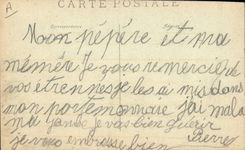 A
CARTE POSTALE
Correspondance
Mon pépére et ma
mémér Je vous remercie de
vos étrennes je les ai mis dans
mon portemonnaie j'ai mal a
ma jambe je vais bien guérir
Pierre
je vous embrasse bien